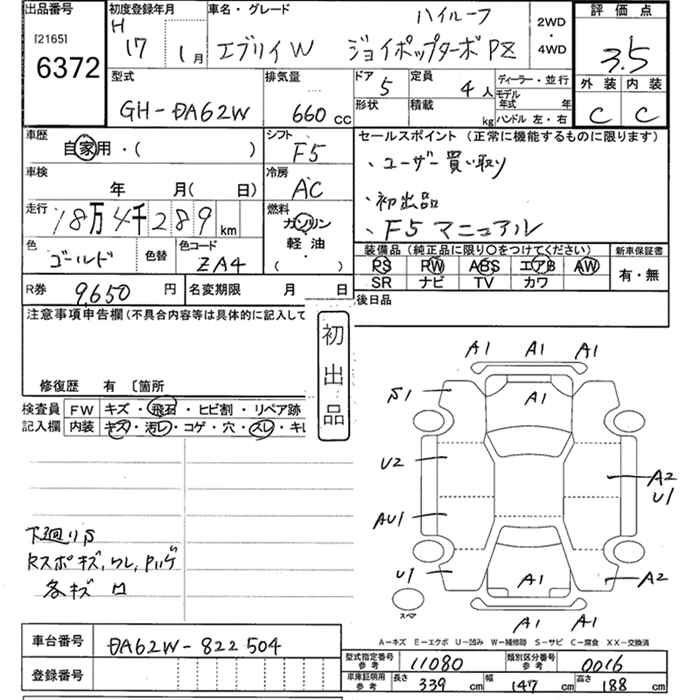 出品番号
[2165]
6372
初度登録年月
H 17 1月
車名・グレード
ハイルーフ
エブリィW ジョイポップターボPZ
2WD
・
4WD
評価点
3.5
外装 内装
C C
型式
GH-DA62W
排気量
660 cc
ドア 5
形状
定員 4人
積載 kg
ディーラー・並行
モデル年式 年
ハンドル 左・右
車歴
自家用・( )
シフト
F5
セールスポイント (正常に機能するものに限ります)
、ユーザー買い取り
、初出品
、F5マニュアル
車検
年 月( 日)
冷房
AC
走行
18万4千289km
燃料
ガソリン
軽油・
( )
色
ゴールド
色替
色コード
ZA4
装備品 (純品に限り〇をつけてください)
新車保証書
PS PW ABS エアB AW
SR ナビ TV カワ
有・無
R券 9,650 円
名変期限 月 日
後日品
注意事項申告欄(不具合内容等は具体的に記入して
修復歴 有 〔箇所
初出品
検査員 FW キズ・飛石・ヒビ割・リペア跡
記入欄 内装 キズ・汚レ・コゲ・穴・スレ・キレ
下廻りS
Rスポキズ,ワレ,Pハゲ
各キズ
A1 A1 A1
S1 A1
U2 A2
U1
AU1
U1 A1 A2
A1 A1
スペア
A-キズ E-エクボ U-凹み W-補修跡 S-サビ C-腐食 XX-交換済
車台番号 DA62W-822504
登録番号
型式指定番号 参考 11080
類別区分番号 参考 0016
車庫証明用 参考 長さ 339 cm 幅 147 cm 高さ 188 cm